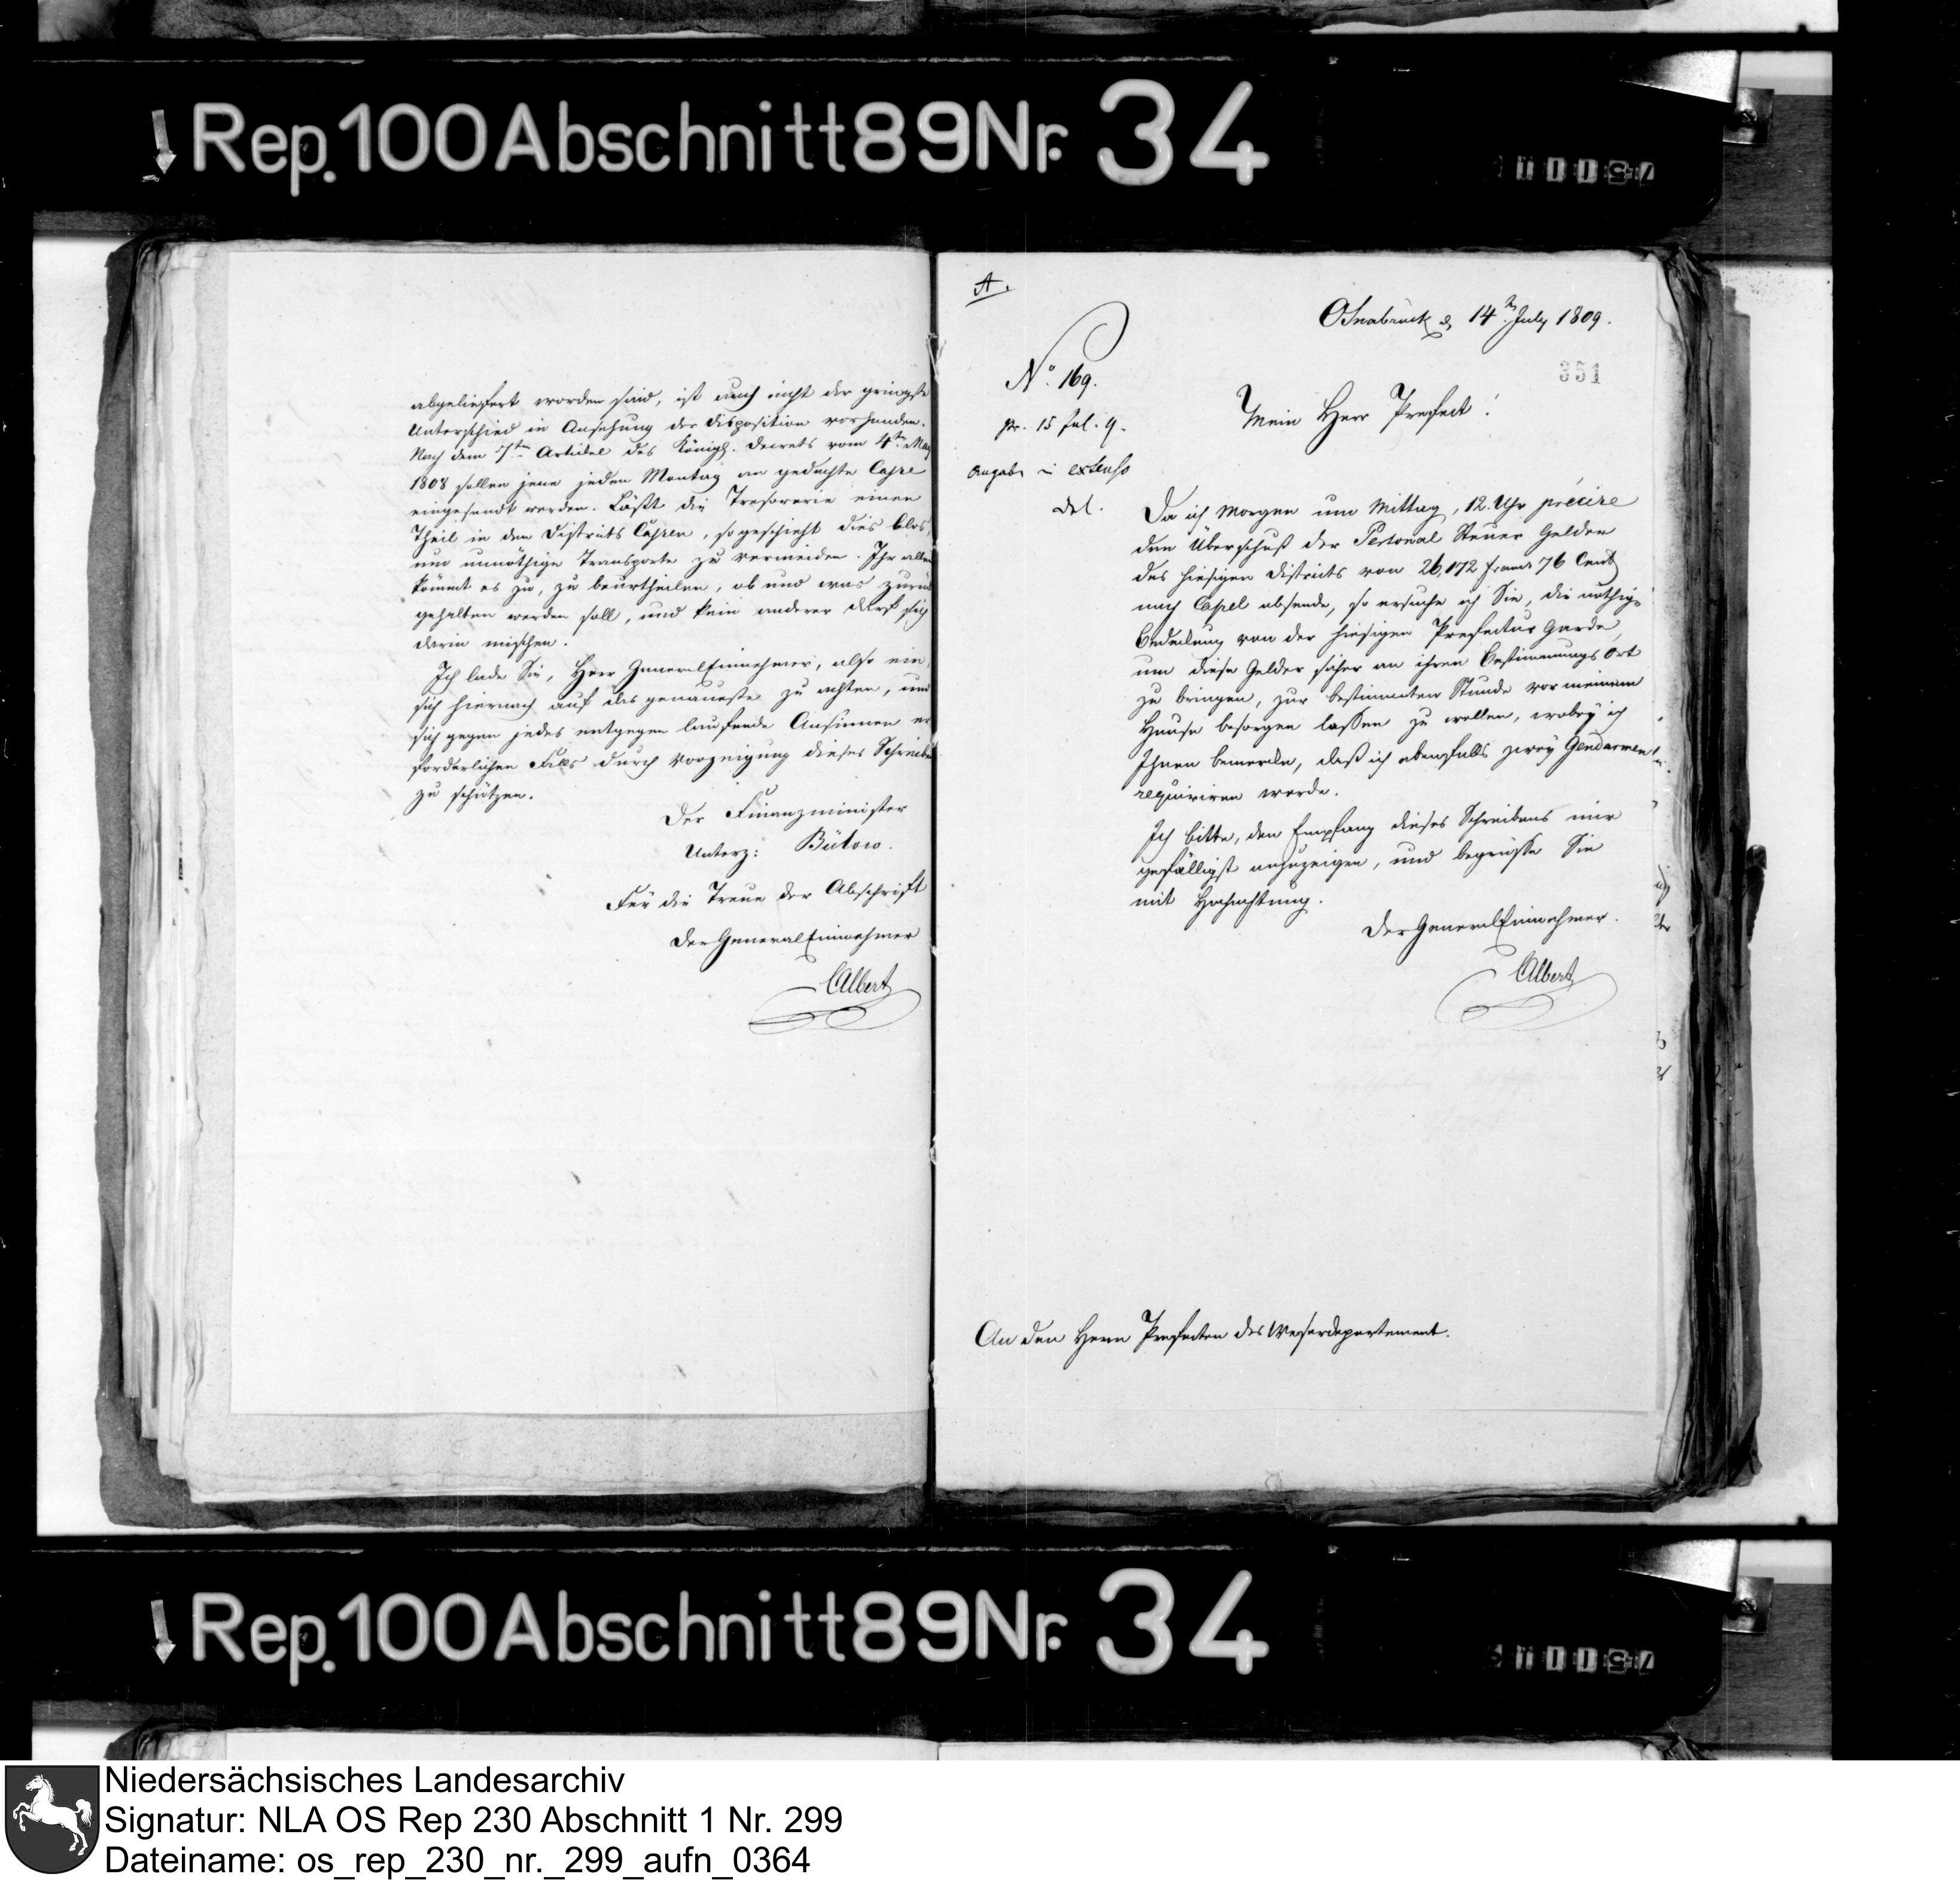 Rep.100Abschnitt89Nr. 34
abgeliefert worden sind, ist auch nicht der gringste
Unterschied in Ansehung der Disposition vorhanden.
Nach dem 7ten Artickel des Königl. Decrets vom 4ten May
1808 sollen jene jeden Montag an gedachte Casse
eingesandt werden. Läßt die Tresorerie einen
Theil in den Districts Cassen, so geschieht dies blos,
um unnöthige Transporte zu vermeiden. Ihr allein
kömmt es zu, zu beurtheilen, ob und was zurück
gehalten werden soll, und kein anderer darf sich
darin mischen.
Ich lade Sie, Herr GeneralEinnehmer, also ein,
sich hiernach auf das genaueste zu achten, und
sich gegen jedes entgegen laufende Ansinnen er
forderlichen Falls durch Vorzeigung dieses Schreibens
zu schützen.
Der Finanzminister
Unterz: Bülow.
Für die Treue der Abschrift
Der GeneralEinnehmer
Albert
A.
Osnabrück d. 14ten July 1809.
351
No. 169.
pr. 15 Jul. 9.
in extenso
del.
Mein Herr Prefect!
Da ich Morgen um Mittag, 12. Uhr précise
den Überschuß der Personal Steuer Gelder
des hiesigen Districts von 26,172 Francs 76 Cent
nach Cassel absende, so ersuche ich Sie, die nöthige
Bedeckung von der hiesigen Prefectur Garde,
um diese Gelder sicher an ihren Bestimmungs Ort
zu bringen, zur bestimmten Stunde vor meinem
Hause besorgen lassen zu wollen, wobey ich
Ihnen bemerke, daß ich ebenfalls zwey Gendarmen
requiriren werde.
Ich bitte, den Empfang dieses Schreibens mir
gefälligst anzuzeigen, und begrüße Sie
mit Hochachtung.
Der GeneralEinnehmer.
Albert
An den Herrn Prefecten des Weserdepartement.
Rep.100Abschnitt89Nr. 34
Niedersächsisches Landesarchiv
Signatur: NLA OS Rep 230 Abschnitt 1 Nr. 299
Dateiname: os_rep_230_nr._299_aufn_0364